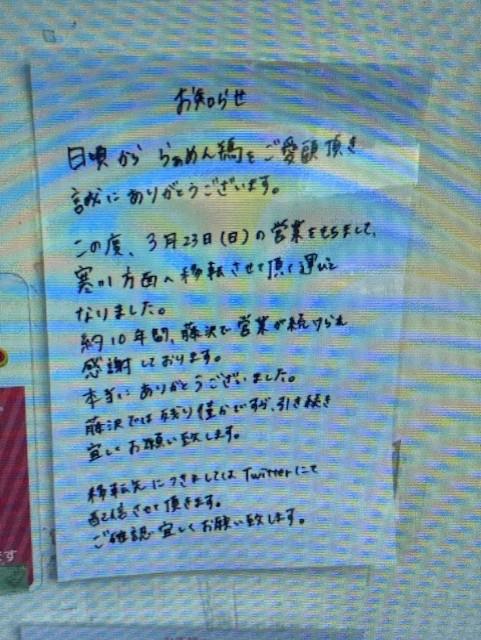 お知らせ
日頃から らぁめん鶏をご愛顧頂き
誠にありがとうございます。
この度、3月23日(日)の営業をもちまして、
寒川方面へ移転させて頂く運びと
なりました。
約10年間、藤沢で営業が続けられ
感謝しております。
本当にありがとうございました。
藤沢では残り僅かですが、引き続き
宜しくお願い致します。
移転先につきましてはTwitterにて
配信させて頂きます。
ご確認宜しくお願い致します。
ます